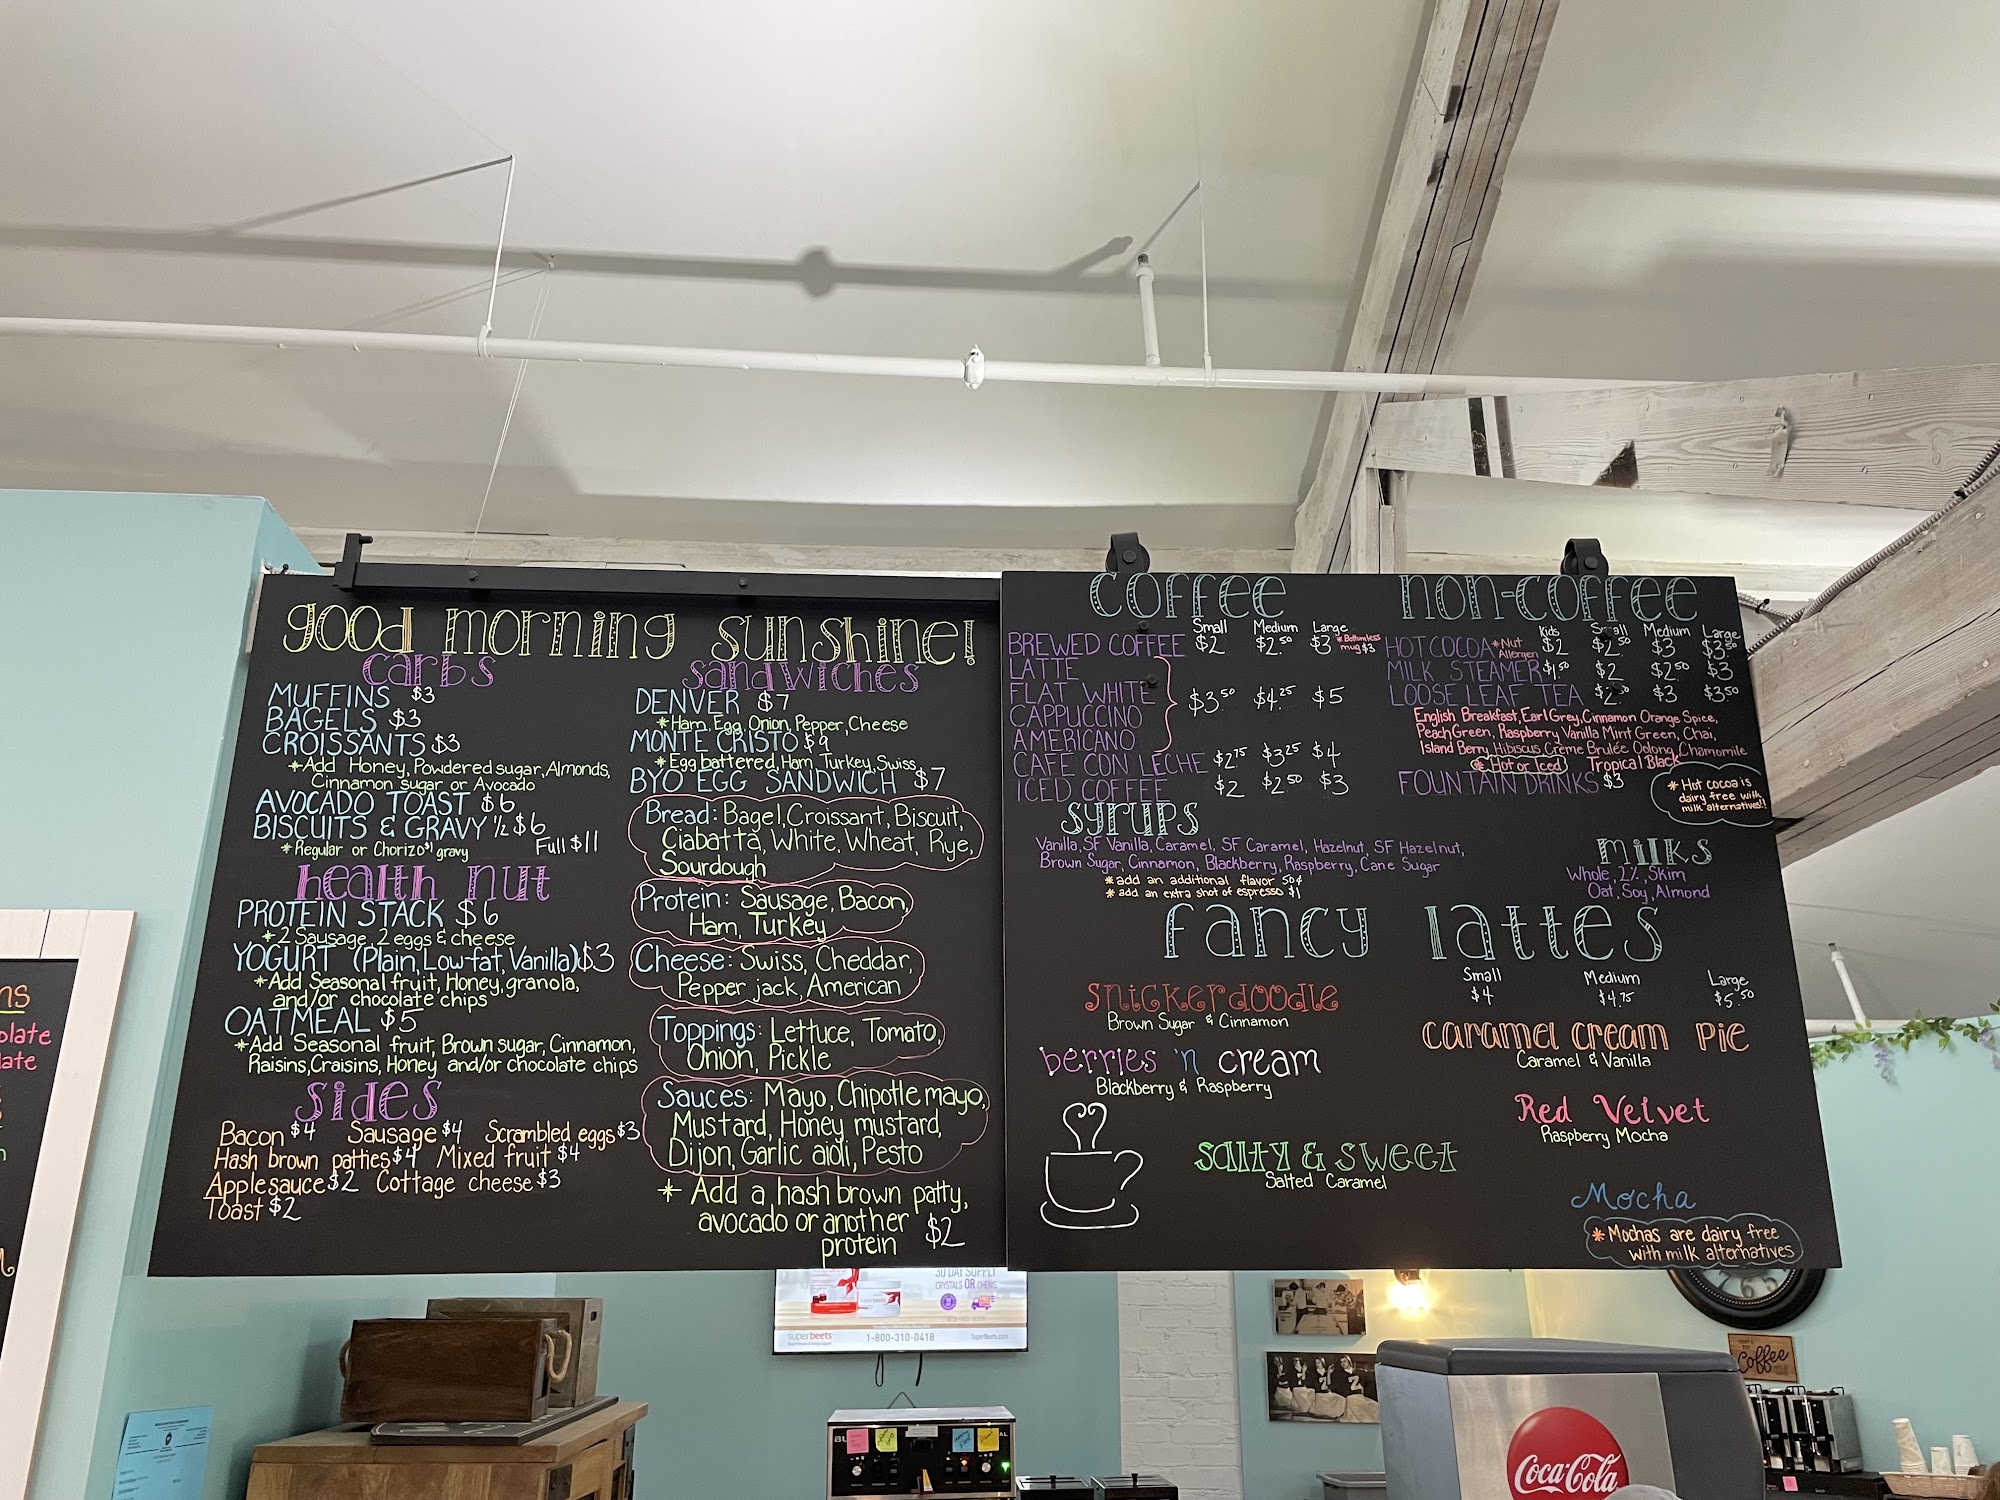 good morning sunshine!
carbs
MUFFINS $3
BAGELS $3
CROISSANTS $3
*Add Honey, Powdered sugar, Almonds,
Cinnamon sugar or Avocado
AVOCADO TOAST $6
BISCUITS & GRAVY 1/2 $6
Full $11
*Regular or Chorizo $1 gravy
health nut
PROTEIN STACK $6
*2 Sausage, 2 eggs & cheese
YOGURT (Plain, Low-fat, Vanilla) $3
*Add Seasonal fruit, Honey, granola,
and/or chocolate chips
OATMEAL $5
*Add Seasonal fruit, Brown sugar, Cinnamon,
Raisins, Craisins, Honey and/or chocolate chips
sides
Bacon $4 Sausage $4 Scrambled eggs $3
Hash brown patties $4 Mixed fruit $4
Applesauce $2 Cottage cheese $3
Toast $2
sandwiches
DENVER $7
*Ham, Egg, Onion, Pepper, Cheese
MONTE CRISTO $9
*Egg battered, Ham, Turkey, Swiss
BYO EGG SANDWICH $7
Bread: Bagel, Croissant, Biscuit,
Ciabatta, White, Wheat, Rye,
Sourdough
Protein: Sausage, Bacon,
Ham, Turkey
Cheese: Swiss, Cheddar,
Pepper jack, American
Toppings: Lettuce, Tomato,
Onion, Pickle
Sauces: Mayo, Chipotle mayo,
Mustard, Honey mustard,
Dijon, Garlic aioli, Pesto
* Add a hash brown patty,
avocado or another
protein $2
coffee
Small Medium Large
BREWED COFFEE $2 $2.50 $3 *Bottomless
mug $3
LATTE
FLAT WHITE $3.50 $4.25 $5
CAPPUCCINO
AMERICANO
CAFE CON LECHE $2.75 $3.25 $4
ICED COFFEE $2 $2.50 $3
non-coffee
Kids Small Medium Large
HOT COCOA *Nut
Allergen $2 $2.50 $3 $3.50
MILK STEAMER $1.50 $2 $2.50 $3
LOOSE LEAF TEA $2.50 $3 $3.50
English Breakfast, Earl Grey, Cinnamon Orange Spice,
Peach Green, Raspberry Vanilla Mint Green, Chai,
Island Berry Hibiscus, Crème Brulée Oolong, Chamomile
*Hot or Iced Tropical Black
FOUNTAIN DRINKS $3
*Hot cocoa is
dairy free with
milk alternatives!!
syrups
Vanilla, SF Vanilla, Caramel, SF Caramel, Hazelnut, SF Hazelnut,
Brown Sugar, Cinnamon, Blackberry, Raspberry, Cane Sugar
*add an additional flavor 50¢
*add an extra shot of espresso $1
milks
Whole, 2%, Skim
Oat, Soy, Almond
fancy lattes
Small Medium Large
$4 $4.75 $5.50
snickerdoodle
Brown Sugar & Cinnamon
caramel cream pie
Caramel & Vanilla
berries 'n cream
Blackberry & Raspberry
Red Velvet
Raspberry Mocha
salty & sweet
Salted Caramel
Mocha
*Mochas are dairy free
with milk alternatives
30 DAY SUPPLY
CRYSTALS OR CHEWS
superbeets
1-800-310-0418
SuperBeets.com
Coffee
Coca-Cola